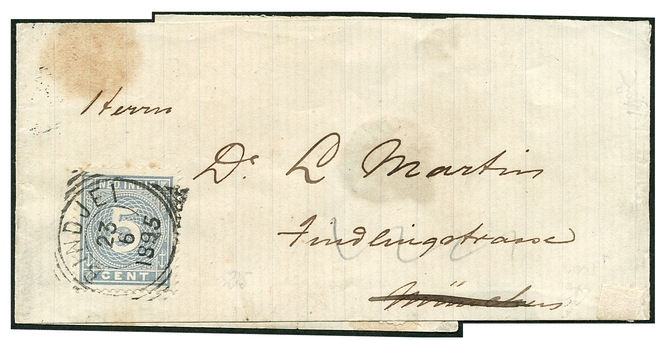 Herrn
Dr L Martin
Findlingstrasse
München
NED INDIË
5
CENT
BINDJEI
23
6
1895